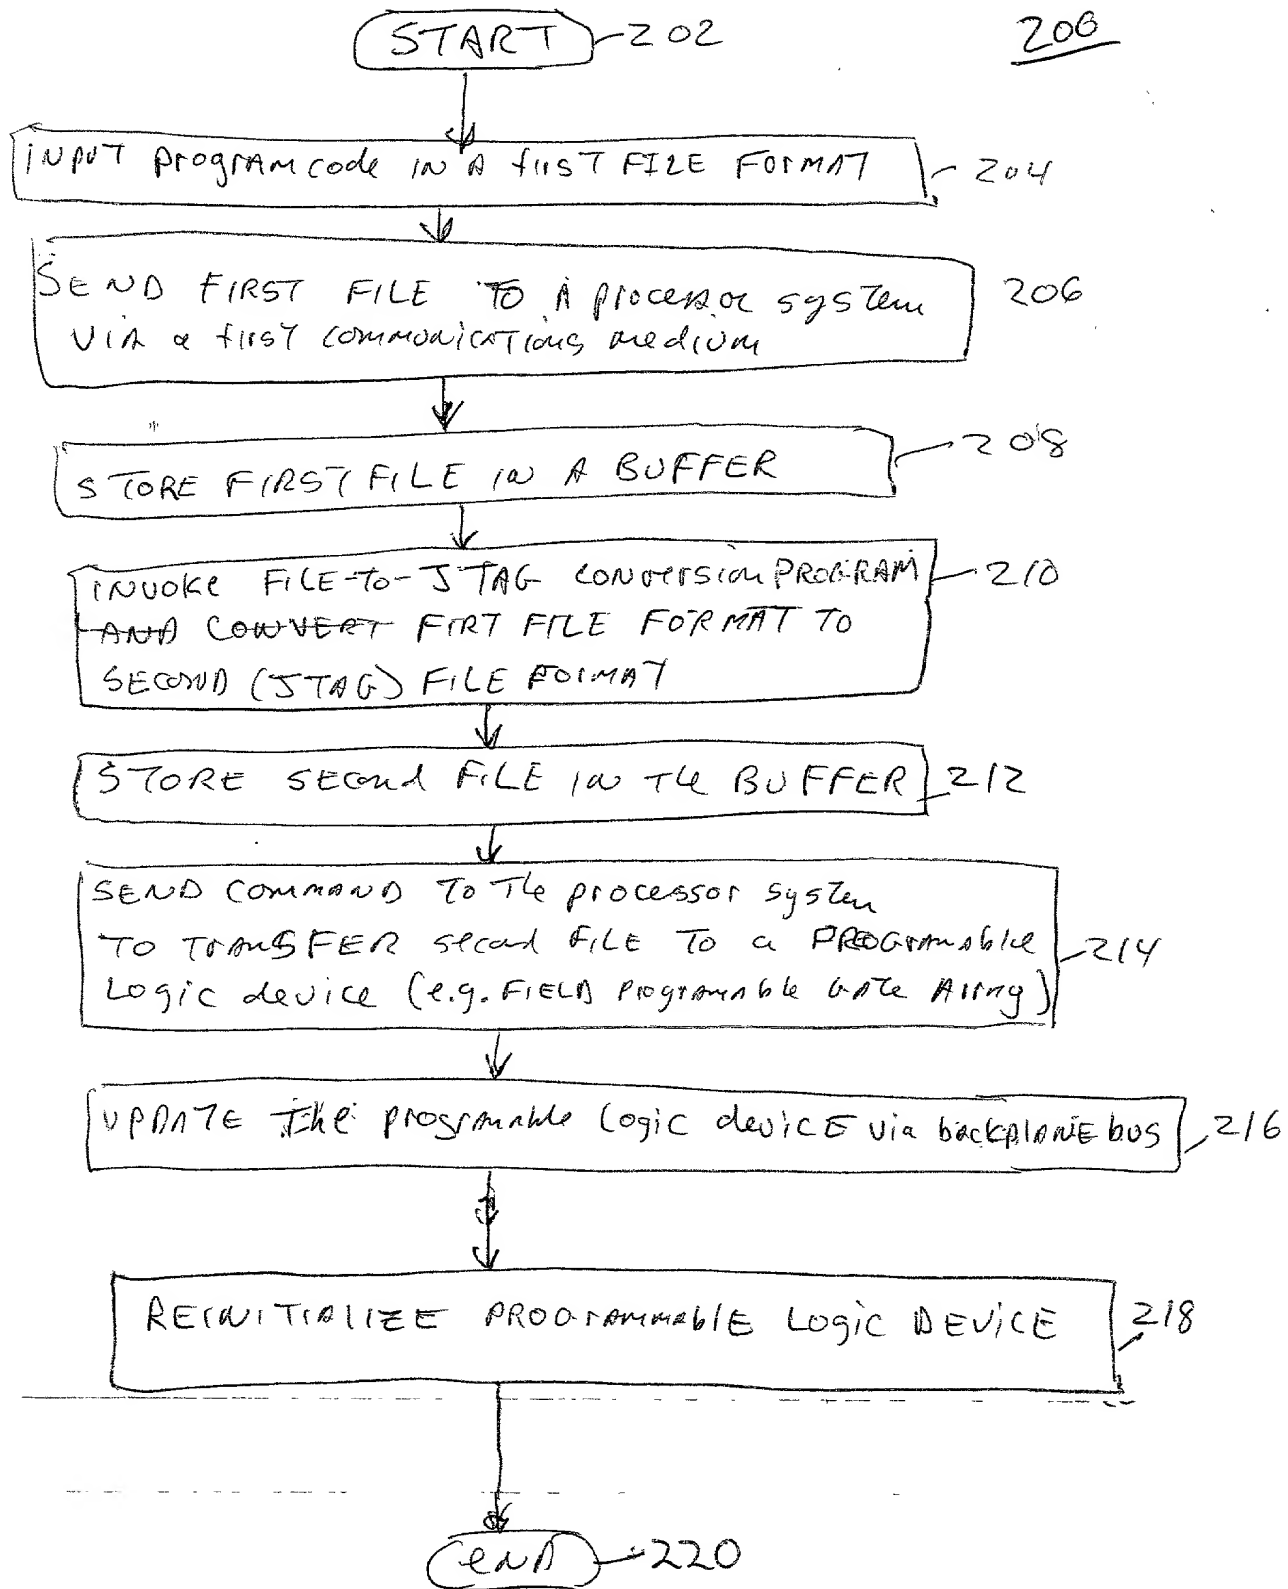 START 202
200
INPUT PROGRAM CODE IN A FIRST FILE FORMAT 204
SEND FIRST FILE TO A PROCESSOR SYSTEM 206
VIA a FIRST COMMUNICATIONS MEDIUM
STORE FIRST FILE IN A BUFFER 208
INVOKE FILE-TO-JTAG CONVERSION PROGRAM 210
AND CONVERT FIRT FILE FORMAT TO
SECOND (JTAG) FILE FORMAT
STORE SECOND FILE IN THE BUFFER 212
SEND COMMAND TO THE PROCESSOR SYSTEM
TO TRANSFER SECOND FILE TO a PROGRAMABLE 214
LOGIC device (e.g. FIELD PROGRAMABLE GATE ARRAY)
UPDATE THE PROGRAMABLE LOGIC DEVICE VIA BACKPLANE BUS 216
REINITIALIZE PROGRAMMABLE LOGIC DEVICE 218
END 220